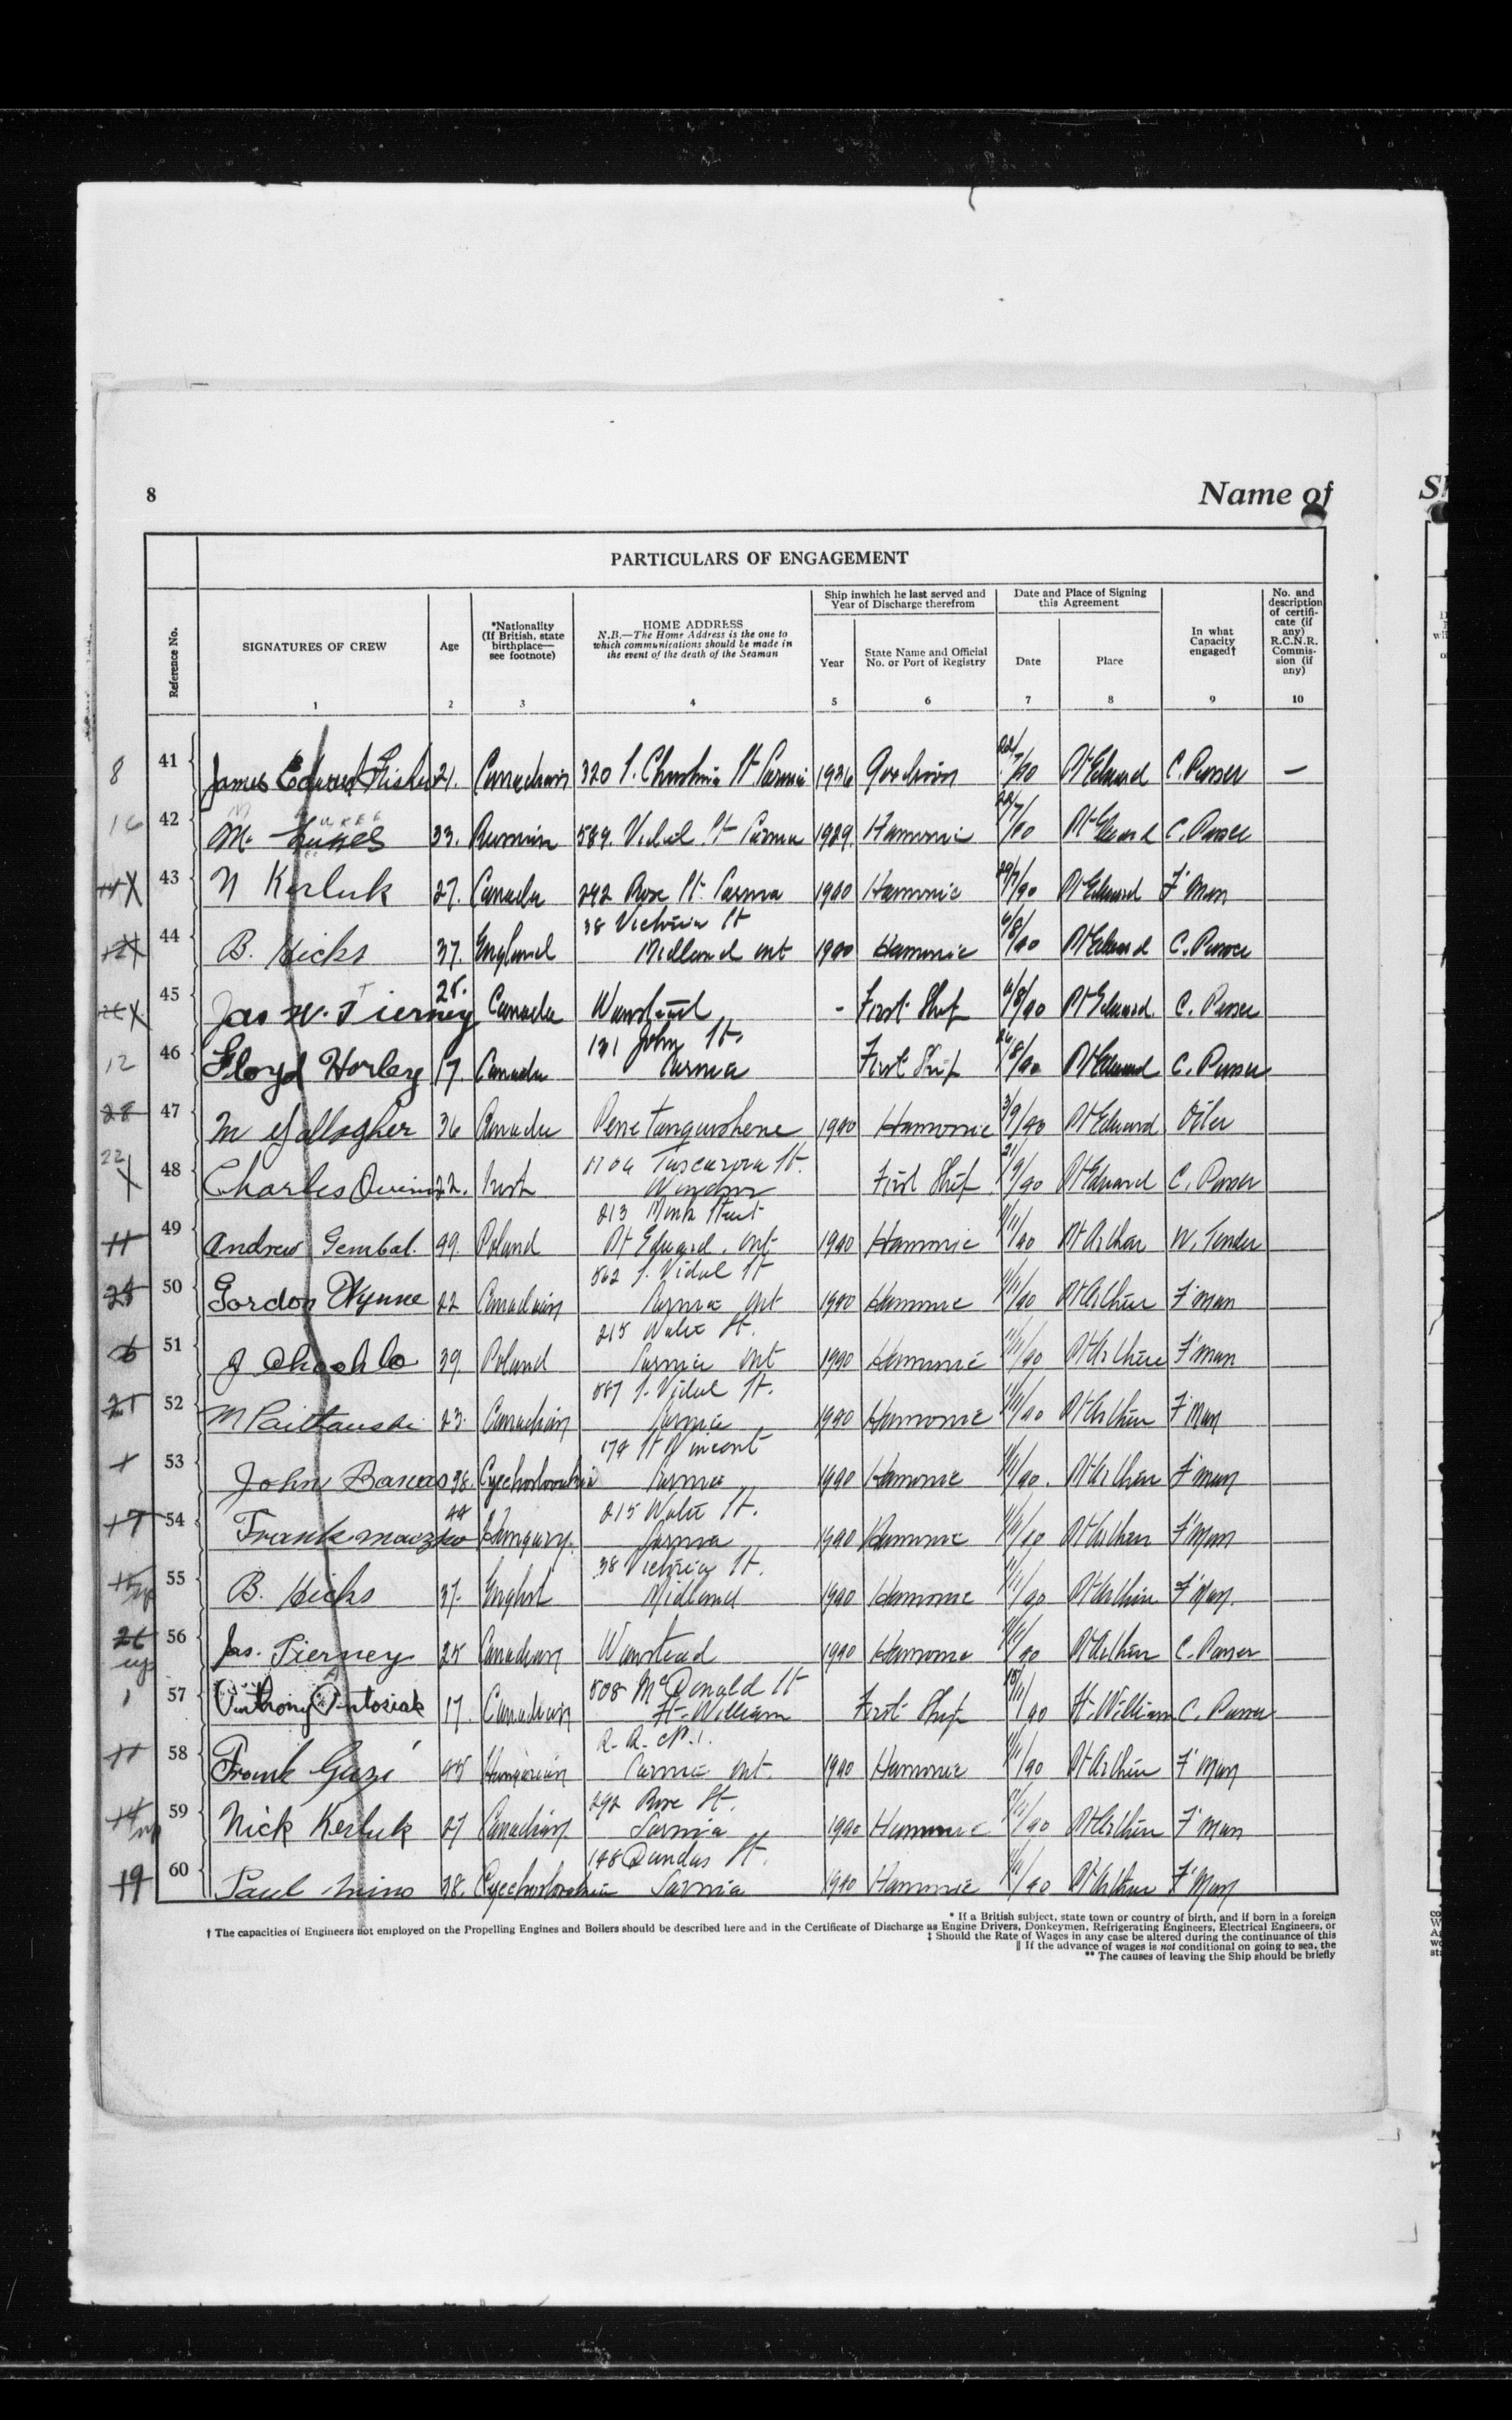 8
Name of
PARTICULARS OF ENGAGEMENT
Reference No.
SIGNATURES OF CREW
Age
*Nationality
(If British, state
birthplace—
see footnote)
HOME ADDRESS
N.B.—The Home Address is the one to
which communications should be made in
the event of the death of the Seaman
Ship inwhich he last served and
Year of Discharge therefrom
Year
State Name and Official
No. or Port of Registry
Date and Place of Signing
this Agreement
Date
Place
In what
Capacity
engaged†
No. and
description
of certifi-
cate (if
any)
R.C.N.R.
Commis-
sion (if
any)
1 2 3 4 5 6 7 8 9 10
8 41 James Edward Fisher 21. Canadian 320 S. Christina St Sarnia 1936 22/7/40 Pt Edward C. Passer —
16 42 M. 33. 589. Vidal St Sarnia 1939 Hamonic Pt Edward C. Passer
43 N Kerluk 27. Canada 292 Rose St. Sarnia 1940 Hamonic Pt Edward F'man
38 Victoria St
44 B. Hicks 37. England Midland ont 1940 Hamonic 6/8/40 Pt Edward C. Passer
45 Jas W. Tierney 25. Canada Wanstead - First Ship 6/8/40 Pt Edward. C. Passer
131 John St.
12 46 Floyd Horley 17. Canada Sarnia First Ship 26/8/40 Pt Edward C. Passer
28 47 M Gallagher 36 Canada Penetanguishene 1940 Hamonic 3/9/40 Pt Edward Oiler
1106 Tuscarora St.
22 48 Charles Quinn 22. Irish Windsor First Ship 21/9/40 Pt Edward C. Passer
213 Monk Street
11 49 Andrew Gembal. 49. Poland Pt Edward. ont 1940 Hamonic 11/11/40 Pt Arthur W. Tender
562 S. Vidal St
25 50 Gordon Wynne 22 Canadian Sarnia ont 1940 Hamonic 11/11/40 Pt Arthur F'man
215 St.
6 51 J 39 Poland Sarnia ont 1940 Hamonic 11/11/40 Pt Arthur F'man
587 S. Vidal St.
21 52 M 23. Canadian Sarnia 1940 Hamonic 11/11/40 Pt Arthur F'man
174 St Vincent
53 John 38. Czechoslovakia Sarnia 1940 Hamonic 11/11/40. Pt Arthur F'man
215 St.
17 54 Frank Maczko 44 Hungary. Sarnia 1940 Hamonic 11/11/40 Pt Arthur F'man
38 Victoria St.
55 B. Hicks 37. English Midland 1940 Hamonic 11/11/40 Pt Arthur F'man.
26 56 Jas. Tierney 25 Canadian Wanstead 1940 Hamonic 11/11/40 Pt Arthur C. Passer
508 McDonald St
1 57 Anthony Antoniak 17. Canadian Ft. William First Ship Ft. William C. Passer
R. R. No. 1.
11 58 Frank Gazi 45 Hungarian Sarnia ont. 1940 Hamonic 11/11/40 Pt Arthur F'man
292 Rose St.
14 59 Nick Kerluk 27 Canadian Sarnia 1940 Hamonic 11/11/40 Pt Arthur F'man
148 Dundas St.
19 60 Paul Mino 38. Czechoslovakia Sarnia 1940 Hamonic 11/11/40 Pt Arthur F'man
* If a British subject, state town or country of birth, and if born in a foreign
† The capacities of Engineers not employed on the Propelling Engines and Boilers should be described here and in the Certificate of Discharge as Engine Drivers, Donkeymen, Refrigerating Engineers, Electrical Engineers, or
‡ Should the Rate of Wages in any case be altered during the continuance of this
‖ If the advance of wages is not conditional on going to sea, the
** The causes of leaving the Ship should be briefly